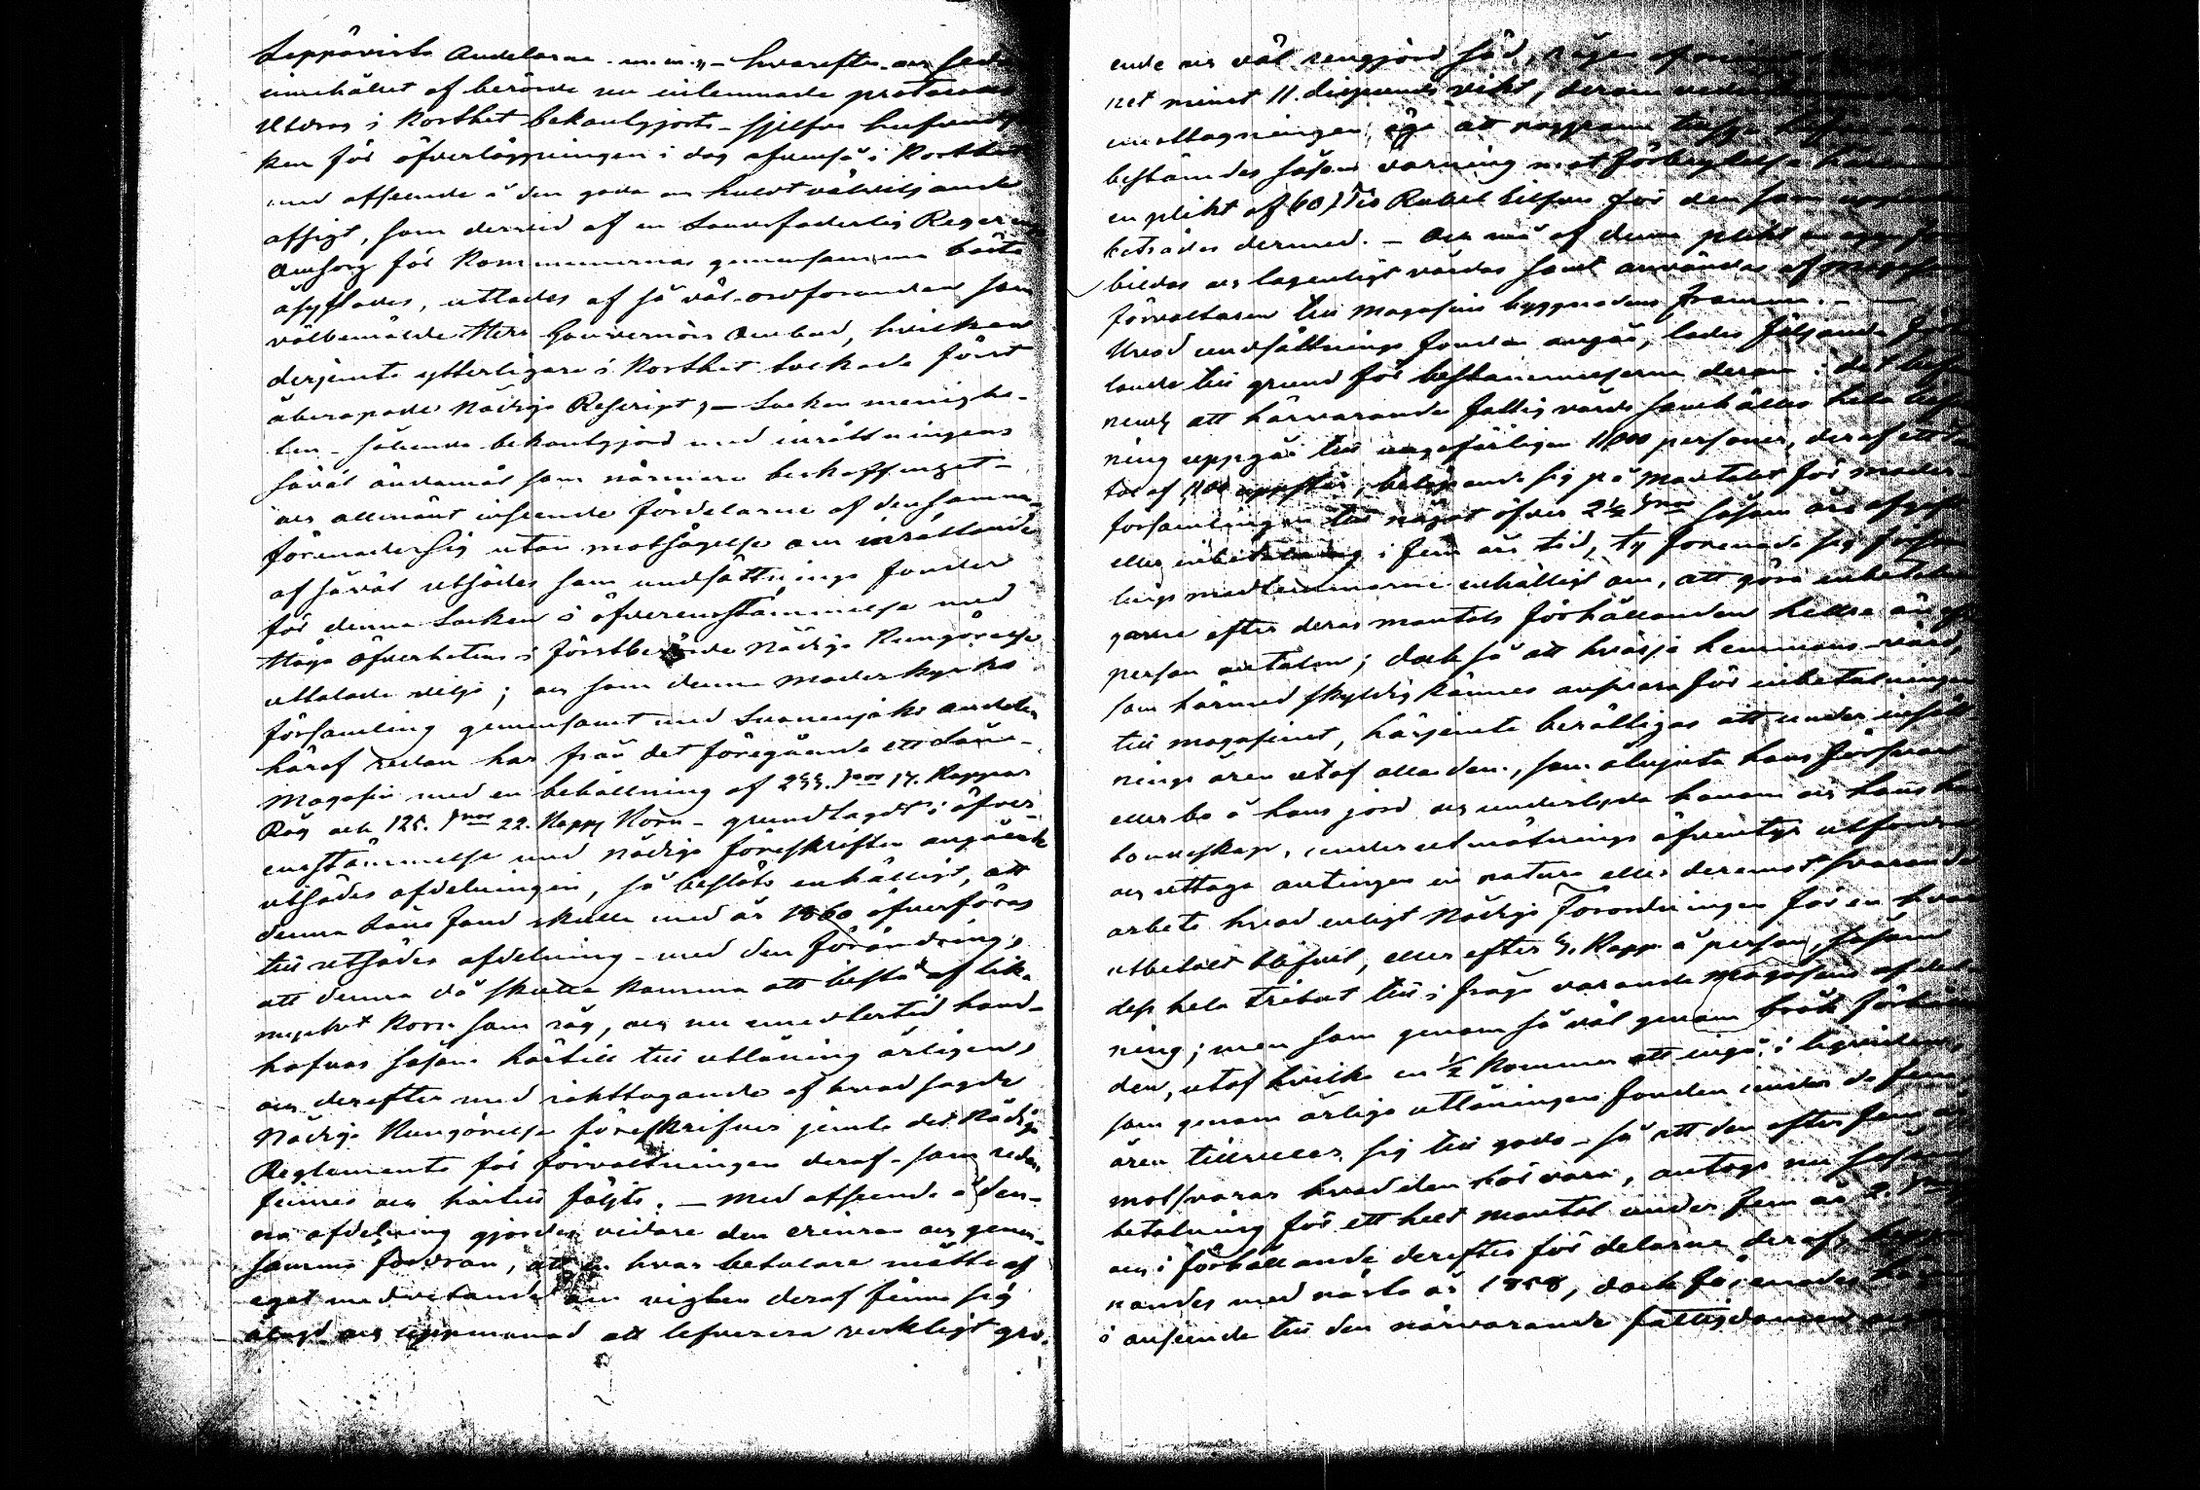 Leppävirta Andelarne m.m. - hvarefter och sedan
innehållet af berörde nu inlemnade protocoll
Utdrag i korthet bekantgjorts - sjelfva hufvudsa
ken för öfverläggningen i dag äfvenså i korthet
med afseende å den goda och huldt välviljande
afsigt, som dervid af en Landsfaderlig Regerings
Omsorg för Kommunernas gemensamma bästa
åsyftades, uttalades af så väl ordföranden som
välbemälde Herr Gouvernörs Ombud, hvilken
derjemte ytterligare i korthet tolkade först
åberopade Nådiga Rescript; - Socken menighe-
ten - sålunda bekantgjord med inrättningens
såväl ändamål som närmare beskaffenhet -
och allmänt inseende fördelarne af densamma
förenade sig utan motsägelse om inrättande
af såväl utsädes som undsättnings fonder
för denna Socken i öfverensstämmelse med
Höga Öfverhetens i förstberörde Nådiga Kungörelse
uttalade vilja; och som denna moderkyrko
församling gemensamt med Suonenjoki andelen
häraf redan har från det föregående ett låne-
Magasin med en behållning af 255. Tnor 17. Kappar
Råg och 125. Tnor 22. Kapp Korn - grundlagdt i öfver-
ensstämmelse med Nådiga föreskriften angående
utsädes afdelningen, så beslöts enhälligt, att
denna Låne fond skulle med år 1860 öfverföras
till utsädes afdelning - med den förändring,
att denna då skulle komma att bestå af lika
mycket Korn som råg, och nu emedlertid hand-
hafvas såsom härtill till utlåning årligen,
och derefter med iakttagande af hvad sagde
Nådiga Kungörelse föreskrifver jemte det Nådiga
Reglemente för förvaltningen deraf - som redan
finnes och härtill följts. - Med afseende å den-
na afdelning gjordes vidare den erinran och gemen-
samma fordran, att en hvar betalare måtte af
eget medvetande om vigten deraf finna sig
ålagd och uppmanad att lefverera verkligt gro-
ende och väl rengjord säd, rågen af
net minst 11. lispunds vikt, derom
emottagningen, äga att noggrant
bestämdes såsom varning mot förbrytelse häremot
en plikt af (10) Tio Rubel Silfver för den som
beträdes dermed. - Och må af denna plikt en
bildas och lagenligt vårdas samt användas af Magasins
förvaltaren till Magasins byggnadens fromma. -
Hvad undsättnings fonden angår, lades följande
lande till grund för bestämmelserna derom: det
nemligen att härvarande fattigvårds samhälles hela
ning uppgår till ungefärligen 11,000 personer, deraf ett
tal af 1100 , belöpande sig på Mantalet för moder
församlingen till något öfver 2½ Tnor såsom års afgift
eller inbetalning i fem års tid, ty förenade sig försam
lings medlemmarne enhälligt om, att göra inbetalnin
garne efter deras mantals förhållanden hellre än
person antalen; dock så att hvarje hemmans-värd,
som härmed skyldig kännes ansvara för inbetalningen
till magasinet, härjemte berättigas att under insätt
nings åren utaf alla dem, som åtnjuta hans försvar
eller bo å hans jord och underlyda honom och hans hus
bondeskap, under utmätnings äfventyr utfordra
och uttaga antingen in natura eller deremot svarande
arbete hvad enligt Nådiga Förordningen för en hvar
utbetalt blifvit, eller efter 4. Kapp å person, såsom
dess hela tribut till i fråga varande Magasins afdel
ning; men som genom så väl genom bråk förhållan
den, utaf hvilka en ½ kommer att ingå i liqviden,
som genom årliga utlåningen fonden under de fem
åren tillvexer sig till godo - så att den efter fem år
motsvarar hvad den bör vara, antogs nu såsom
betalning för ett helt mantal under fem år 2. Tnor
och i förhållande derefter för delarne deraf,
nandes med nästa år 1858, dock förenades
i anseende till den närvarande fattigdomen